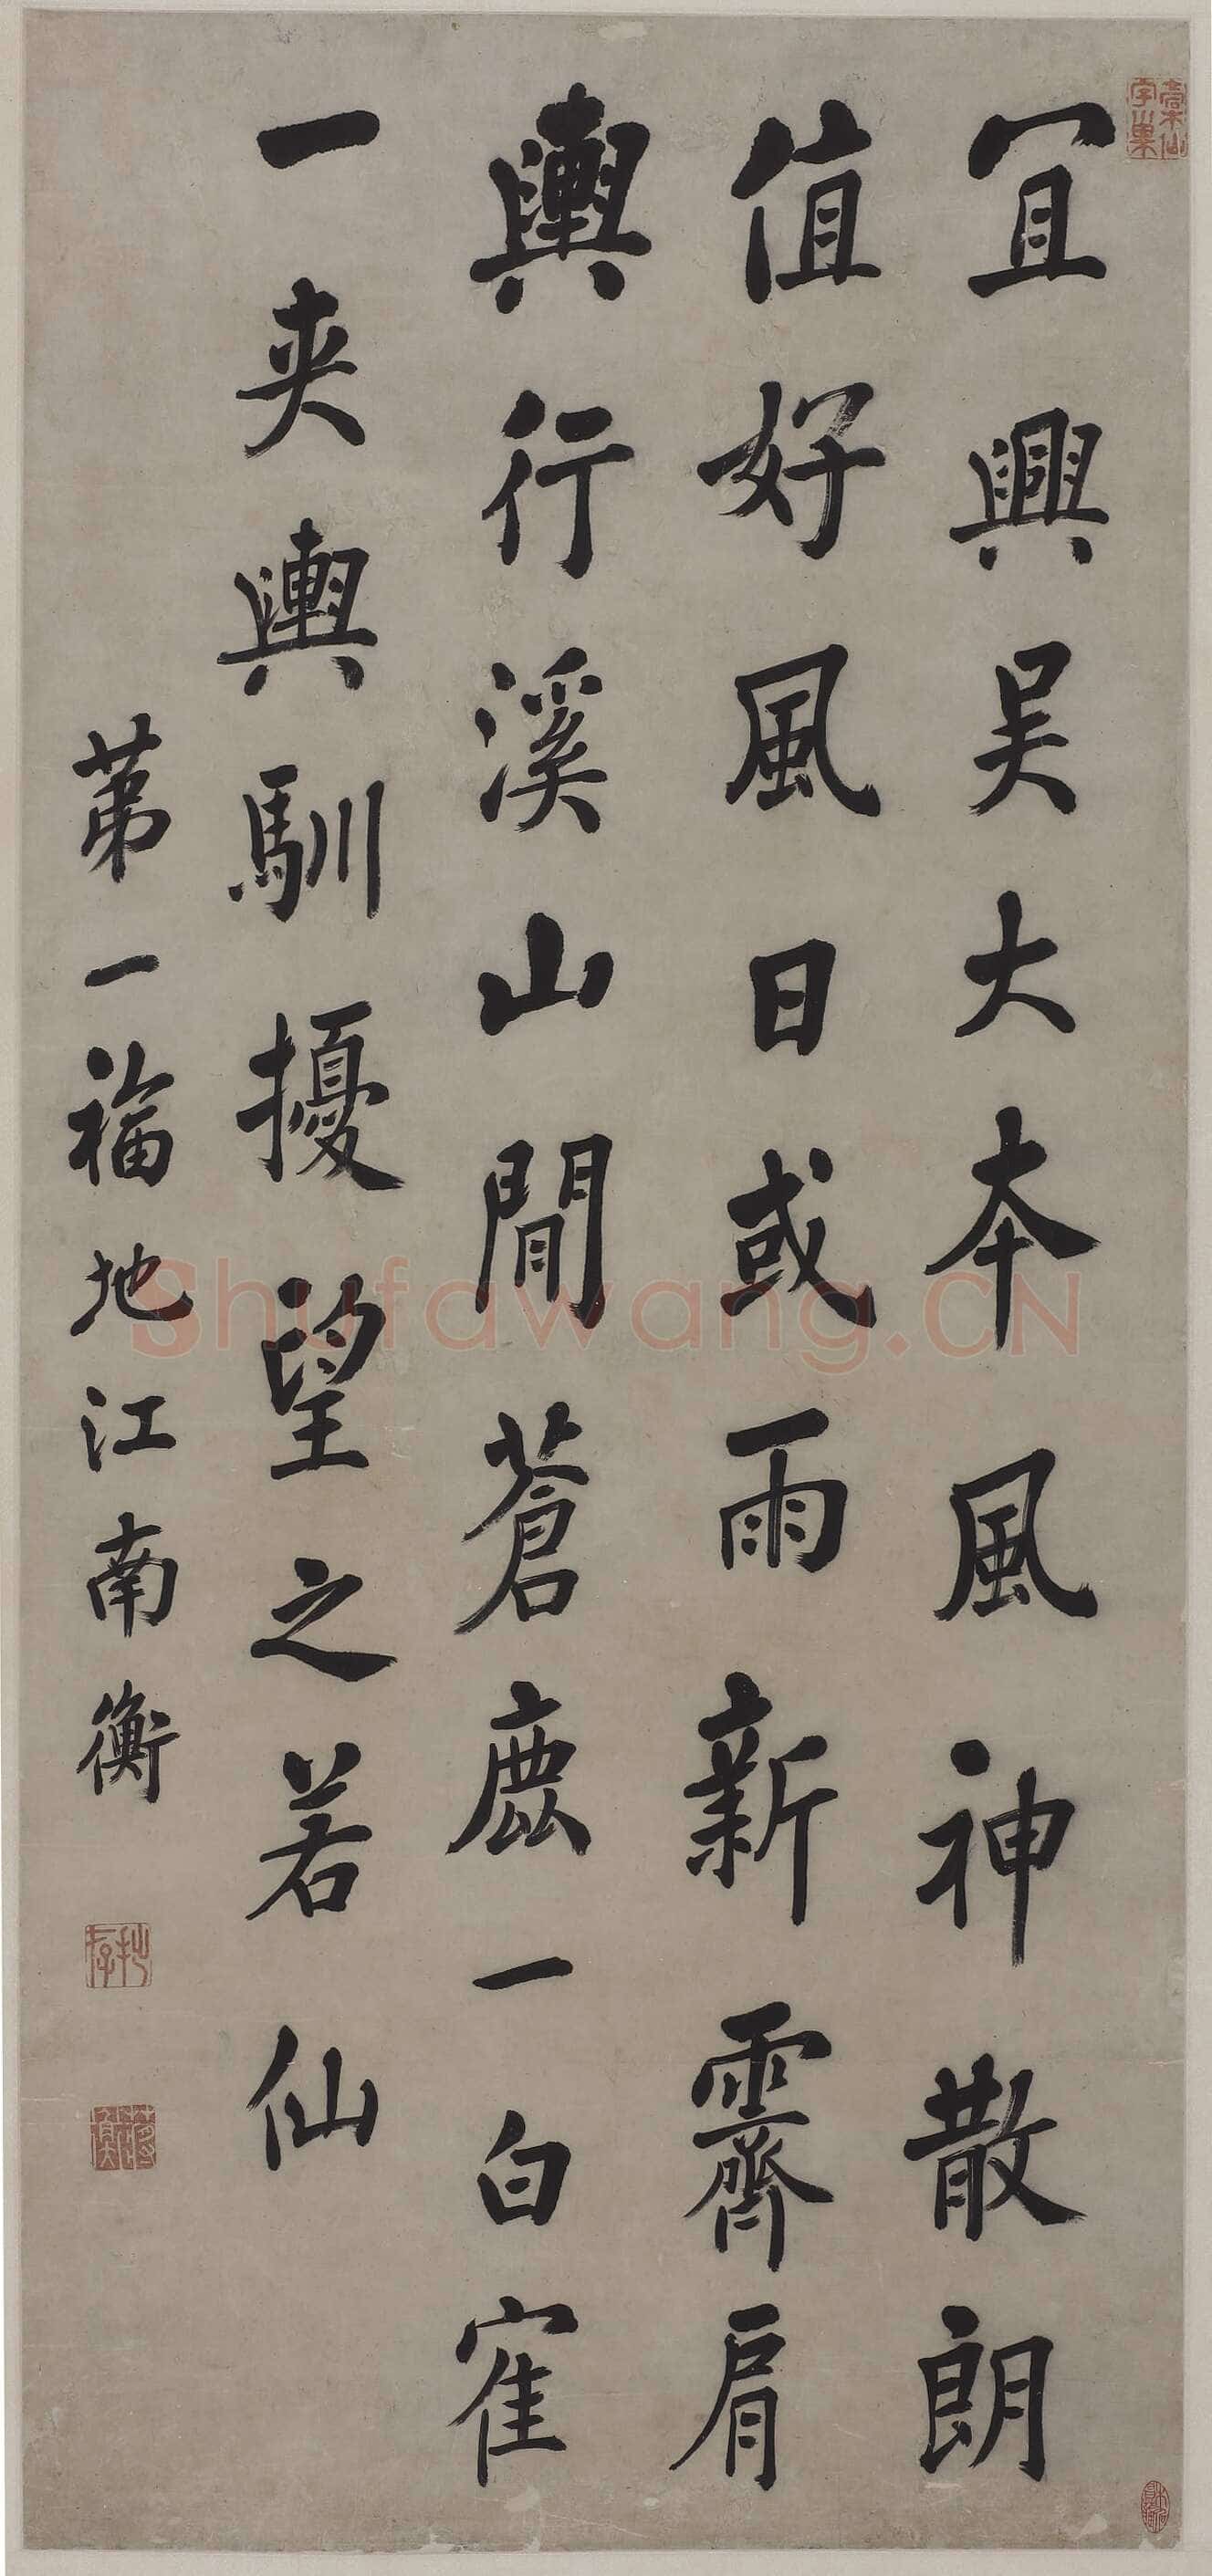 冝興吴大本風神散朗
值好風日或雨新霽肩
輿行溪山間蒼鹿一白寉
一夹輿馴擾望之若仙
第一福地江南衡
Shufawang.CN